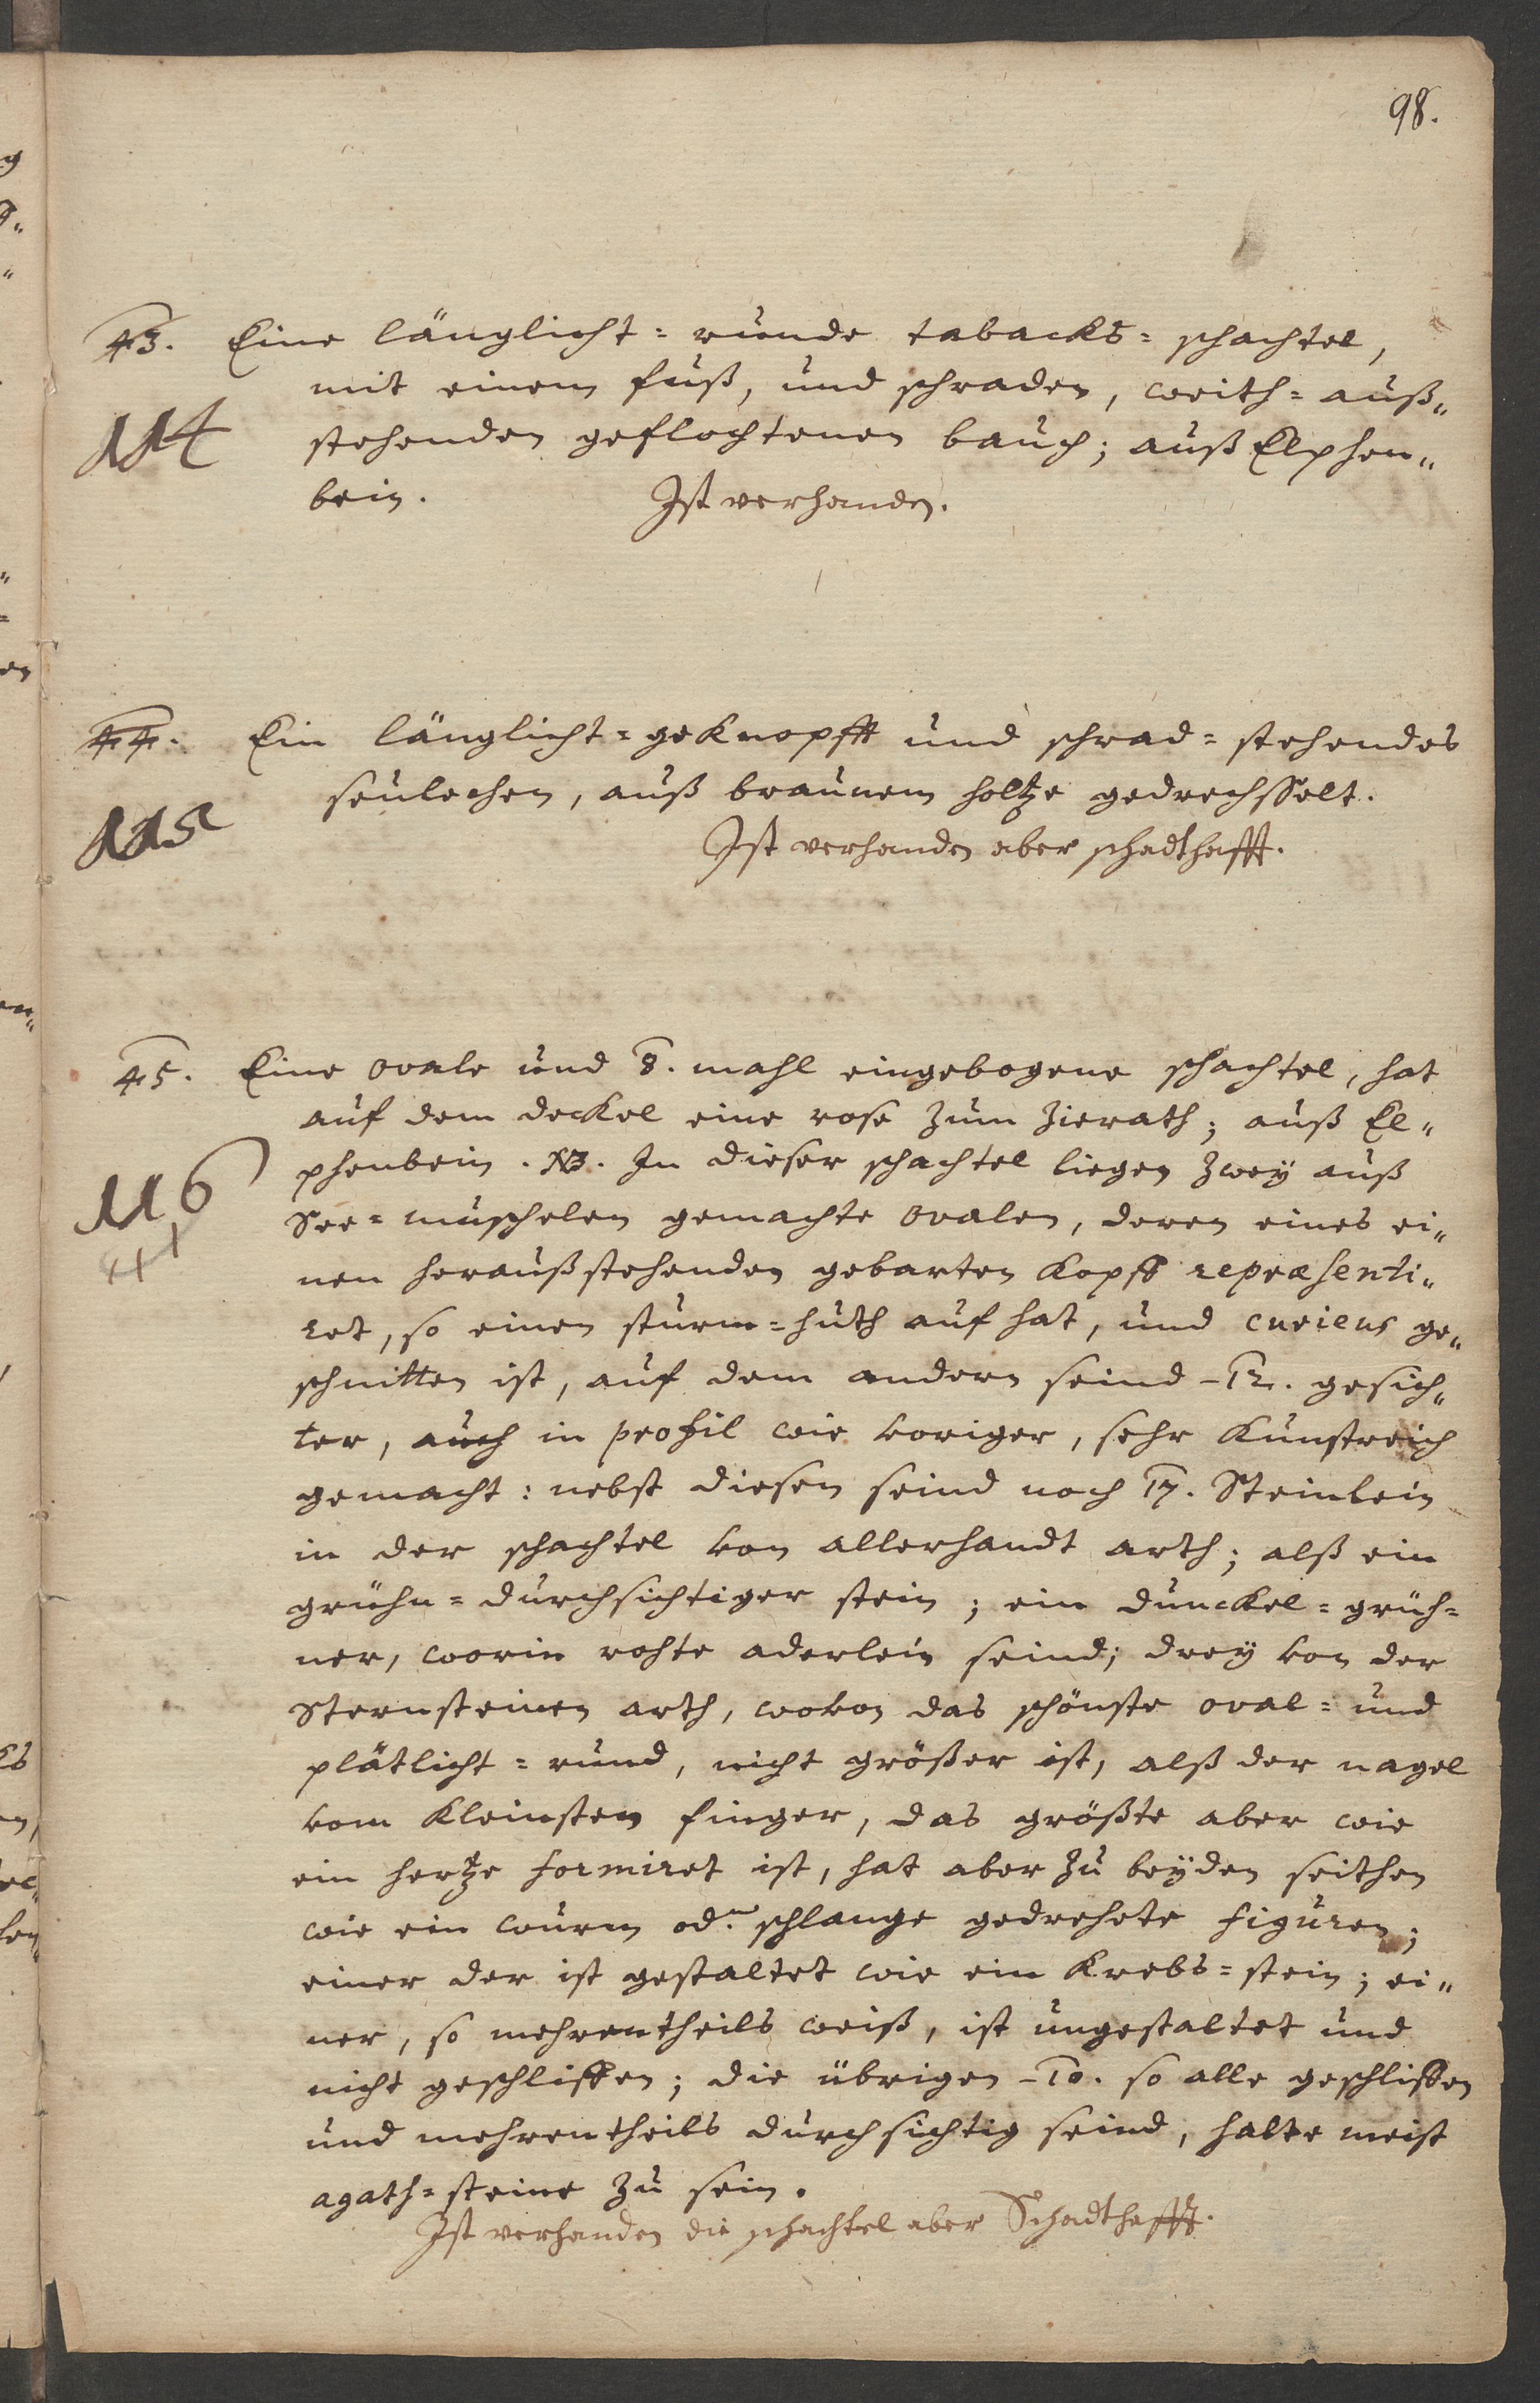 98.
43. Eine länglicht=runde tabacks=schachtel,
mit einem fuß, und schraden, weith=auß„
114
stehenden geflochtenen bauch; auß Elphen„
bein. Ist verhanden.
44. Ein länglicht=geknopfft und schrad=stehendes
seulechen, auß braunem holtze gedrechsselt.
115
Ist verhanden aber schadthafft.
45. Eine ovale und 8. mahl eingebogene schachtel, hat
auf dem deckel eine rose zum zierath; auß El„
phenbein. NB. In dieser schachtel liegen zwey auß
116
See=muschelen gemachte ovalen, deren eines ei„
nen heraußstehenden gebarten kopff repræsenti„
ret, so einen sturm=huth auf hat, und curieus ge„
schnitten ist, auf dem andern seind -12. gesich„
ter, auch in profil wie voriger, sehr kunstreich
gemacht: nebst diesen seind noch 17. Steinlein
in der schachtel von allerhandt arth; alß ein
grühn=durchsichtiger stein; ein dunckel=grüh=
ner, worin rohte aderlein seind; drey von der
Sternsteinen arth, wovon das schönste oval= und
plätlicht=rund, nicht größer ist, alß der nagel
vom kleinsten finger, das größte aber wie
ein hertze formiret ist, hat aber zu beyden seithen
wie ein wurm od. schlange gedrehete figuren;
einer der ist gestaltet wie ein Krebs=stein; ei„
ner, so mehrentheils weiß, ist ungestaltet und
nicht geschliffen; die übrigen -10. so alle geschliffen
und mehrentheils durchsichtig seind, halte meist
agath=steine zu sein.
Ist verhanden die schachtel aber Schadthafft.